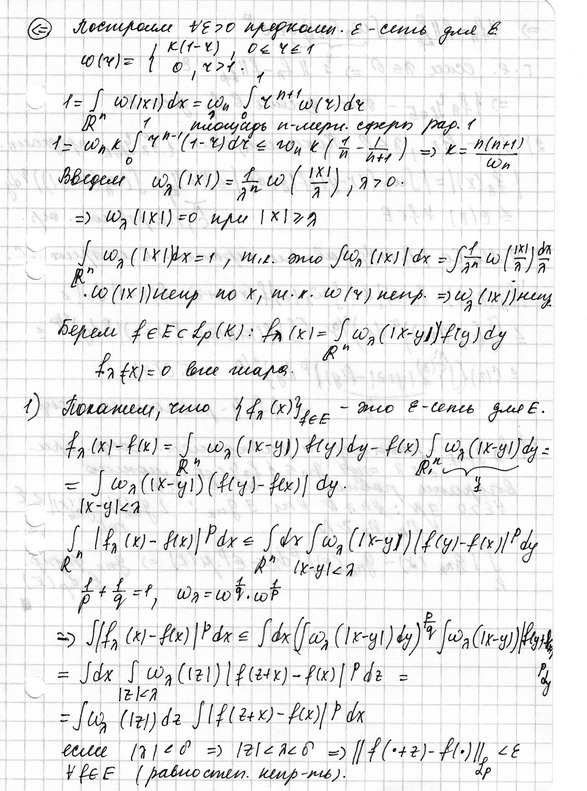 ⇐ Построим ∀ε>0 предкомп. ε-сеть для E
ω(r) = { K(1-r), 0≤r≤1
0, r>1.
1 = ∫_{ℝⁿ} ω(|x|)dx = ω_n ∫_0^1 r^{n+1} ω(r)dr
площадь n-мерн. сферы рад. 1
1 = ω_n K ∫_0^1 r^{n-1}(1-r)dr ≤ ω_n K (1/n - 1/(n+1)) ⇒ K = n(n+1)/ω_n
Введём ω_λ(|x|) = 1/λⁿ ω(|x|/λ), λ>0.
⇒ ω_λ(|x|) = 0 при |x| ≥ λ
∫_{ℝⁿ} ω_λ(|x|)dx = 1, т.к. это ∫ω_λ(|x|)dx = ∫ 1/λⁿ ω(|x|/λ) dx/λ
ω(|x|) непр по x, т.к. ω(r) непр. ⇒ ω_λ(|x|) непр
Берем f∈E⊂L_p(K): f_λ(x) = ∫_{ℝⁿ} ω_λ(|x-y|)f(y)dy
f_λ(x) = 0 вне шара.
1) Покажем, что {f_λ(x)}_{f∈E} - это ε-сеть для E.
f_λ(x)-f(x) = ∫_{ℝⁿ} ω_λ(|x-y|) f(y)dy - f(x) ∫_{ℝⁿ} ω_λ(|x-y|)dy =
1
= ∫_{|x-y|<λ} ω_λ(|x-y|)(f(y)-f(x)) dy.
∫_{ℝⁿ} |f_λ(x)-f(x)|^p dx ≤ ∫_{ℝⁿ} dx ∫_{|x-y|<λ} ω_λ(|x-y|)|f(y)-f(x)|^p dy
1/p + 1/q = 1, ω_λ = ω^{1/q}·ω^{1/p}
⇒ ∫|f_λ(x)-f(x)|^p dx ≤ ∫dx(∫ω_λ(|x-y|)dy)^{p/q} ∫ω_λ(|x-y|)|f(y)-f(x)|^p dy
= ∫dx ∫_{|z|<λ} ω_λ(|z|)|f(z+x)-f(x)|^p dz =
= ∫ω_λ(|z|)dz ∫|f(z+x)-f(x)|^p dx
если |λ|<δ ⇒ |z|<λ<δ ⇒ ‖f(·+z)-f(·)‖_{L_p} < ε
∀f∈E (равностеп. непр-ть).